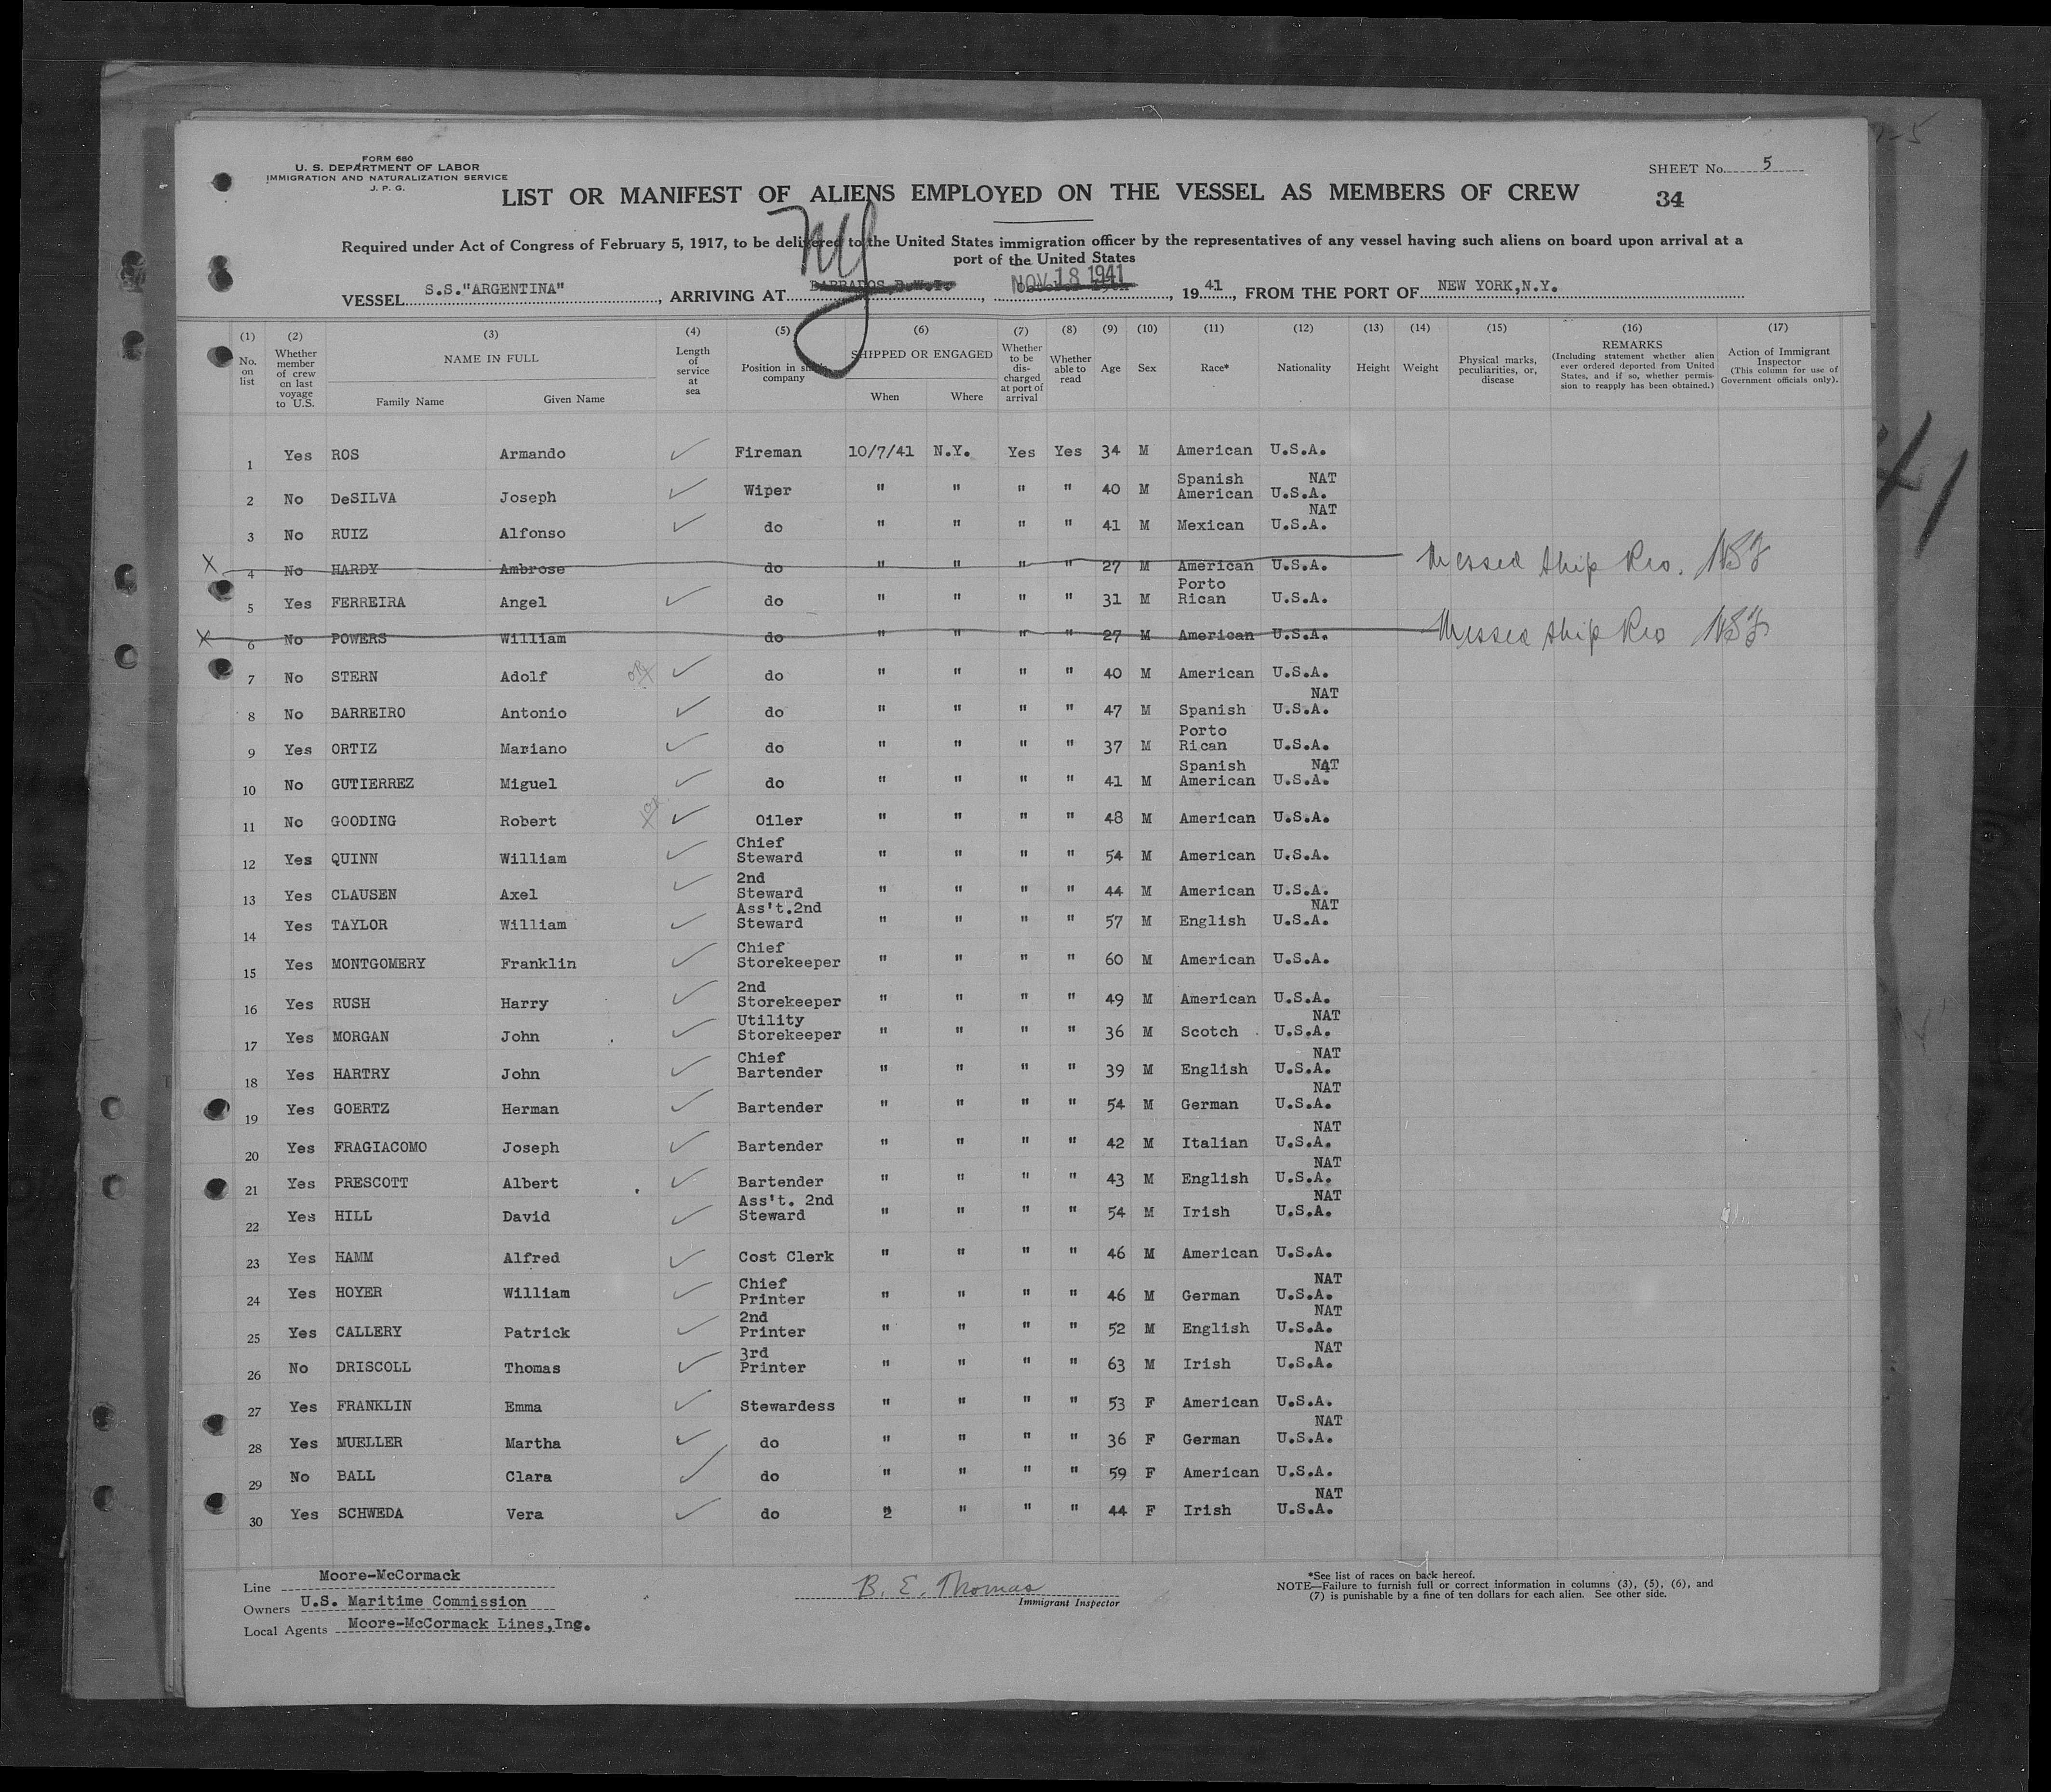 FORM 680
U. S. DEPARTMENT OF LABOR
IMMIGRATION AND NATURALIZATION SERVICE
J. P. G.
SHEET No. 5
LIST OR MANIFEST OF ALIENS EMPLOYED ON THE VESSEL AS MEMBERS OF CREW
34
NY
Required under Act of Congress of February 5, 1917, to be delivered to the United States immigration officer by the representatives of any vessel having such aliens on board upon arrival at a
port of the United States
VESSEL S.S."ARGENTINA", ARRIVING AT BARBADOS,B.W.I., NOV 18 1941, 1941, FROM THE PORT OF NEW YORK,N.Y.
(1) (2) (3) (4) (5) (6) (7) (8) (9) (10) (11) (12) (13) (14) (15) (16) (17)
No. on list
Whether member of crew on last voyage to U.S.
NAME IN FULL
Family Name Given Name
Length of service at sea
Position in ship's company
SHIPPED OR ENGAGED
When Where
Whether to be discharged at port of arrival
Whether able to read
Age
Sex
Race*
Nationality
Height
Weight
Physical marks, peculiarities, or, disease
REMARKS
(Including statement whether alien ever ordered deported from United States, and if so, whether permission to reapply has been obtained.)
Action of Immigrant Inspector
(This column for use of Government officials only).
1 Yes ROS Armando ✓ Fireman 10/7/41 N.Y. Yes Yes 34 M American U.S.A.
2 No DeSILVA Joseph ✓ Wiper " " " " 40 M Spanish American NAT U.S.A.
3 No RUIZ Alfonso ✓ do " " " " 41 M Mexican NAT U.S.A.
X 4 No HARDY Ambrose do " " " " 27 M American U.S.A. Missed Ship Rio.
5 Yes FERREIRA Angel ✓ do " " " " 31 M Porto Rican U.S.A.
X 6 No POWERS William do " " " " 27 M American U.S.A. Missed Ship Rio
7 No STERN Adolf ✓ do " " " " 40 M American U.S.A.
8 No BARREIRO Antonio ✓ do " " " " 47 M Spanish NAT U.S.A.
9 Yes ORTIZ Mariano ✓ do " " " " 37 M Porto Rican U.S.A.
10 No GUTIERREZ Miguel ✓ do " " " " 41 M Spanish American NAT U.S.A.
11 No GOODING Robert ✓ Oiler " " " " 48 M American U.S.A.
12 Yes QUINN William ✓ Chief Steward " " " " 54 M American U.S.A.
13 Yes CLAUSEN Axel ✓ 2nd Steward " " " " 44 M American U.S.A.
14 Yes TAYLOR William ✓ Ass't.2nd Steward " " " " 57 M English NAT U.S.A.
15 Yes MONTGOMERY Franklin ✓ Chief Storekeeper " " " " 60 M American U.S.A.
16 Yes RUSH Harry ✓ 2nd Storekeeper " " " " 49 M American U.S.A.
17 Yes MORGAN John ✓ Utility Storekeeper " " " " 36 M Scotch NAT U.S.A.
18 Yes HARTRY John ✓ Chief Bartender " " " " 39 M English NAT U.S.A.
19 Yes GOERTZ Herman ✓ Bartender " " " " 54 M German NAT U.S.A.
20 Yes FRAGIACOMO Joseph ✓ Bartender " " " " 42 M Italian NAT U.S.A.
21 Yes PRESCOTT Albert ✓ Bartender " " " " 43 M English NAT U.S.A.
22 Yes HILL David ✓ Ass't. 2nd Steward " " " " 54 M Irish NAT U.S.A.
23 Yes HAMM Alfred ✓ Cost Clerk " " " " 46 M American U.S.A.
24 Yes HOYER William ✓ Chief Printer " " " " 46 M German NAT U.S.A.
25 Yes CALLERY Patrick ✓ 2nd Printer " " " " 52 M English NAT U.S.A.
26 No DRISCOLL Thomas ✓ 3rd Printer " " " " 63 M Irish NAT U.S.A.
27 Yes FRANKLIN Emma ✓ Stewardess " " " " 53 F American U.S.A.
28 Yes MUELLER Martha ✓ do " " " " 36 F German NAT U.S.A.
29 No BALL Clara ✓ do " " " " 59 F American U.S.A.
30 Yes SCHWEDA Vera ✓ do 2 " " " 44 F Irish NAT U.S.A.
Line Moore-McCormack
Owners U.S. Maritime Commission
Local Agents Moore-McCormack Lines,Inc.
B. E. Thomas
Immigrant Inspector
*See list of races on back hereof.
NOTE—Failure to furnish full or correct information in columns (3), (5), (6), and
(7) is punishable by a fine of ten dollars for each alien. See other side.
41